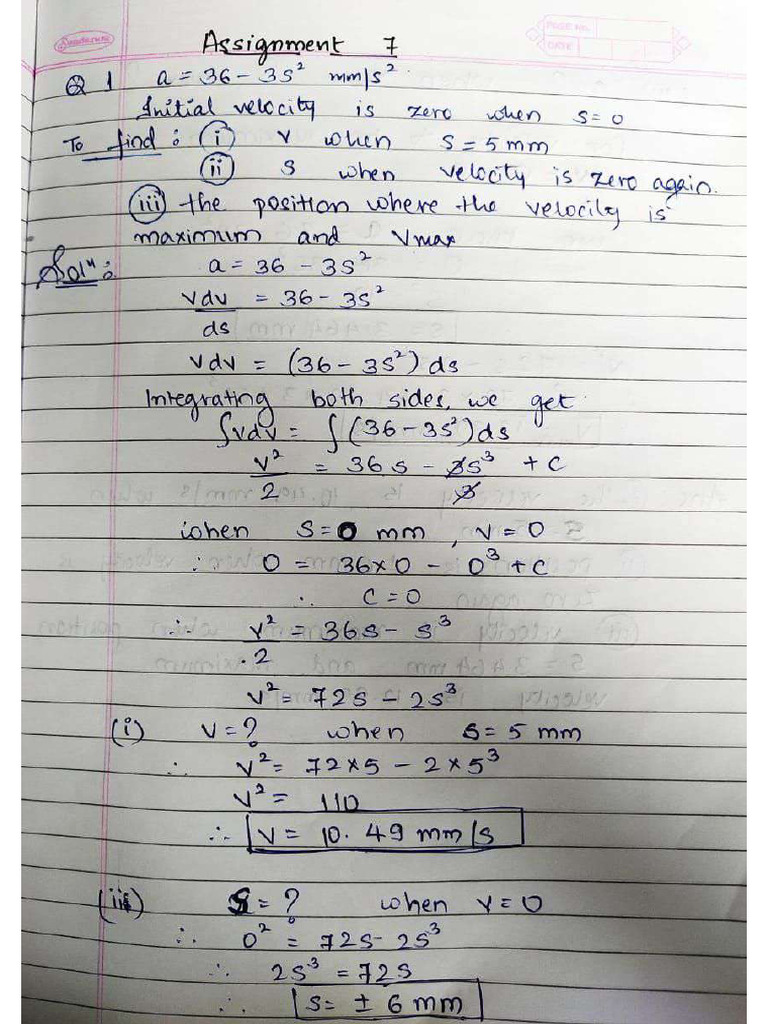 Assignment 7
PAGE NO.
DATE
Q 1 a = 36 - 3s² mm/s²
Initial velocity is zero when s = 0
To find: (i) v when s = 5 mm
(ii) s when velocity is zero again.
(iii) the position where the velocity is
maximum and Vmax
Solⁿ: a = 36 - 3s²
vdv = 36 - 3s²
ds
vdv = (36 - 3s²) ds
Integrating both sides, we get
∫vdv = ∫(36 - 3s²) ds
v² = 36s - 3s³ + c
2 3
when s = 0 mm, v = 0
∴ 0 = 36×0 - 0³ + c
∴ c = 0
∴ v² = 36s - s³
2
v² = 72s - 2s³
(i) v = ? when s = 5 mm
∴ v² = 72×5 - 2×5³
v² = 110
∴ v = 10.49 mm/s
(ii) s = ? when v = 0
∴ 0² = 72s - 2s³
∴ 2s³ = 72s
∴ s = ± 6 mm